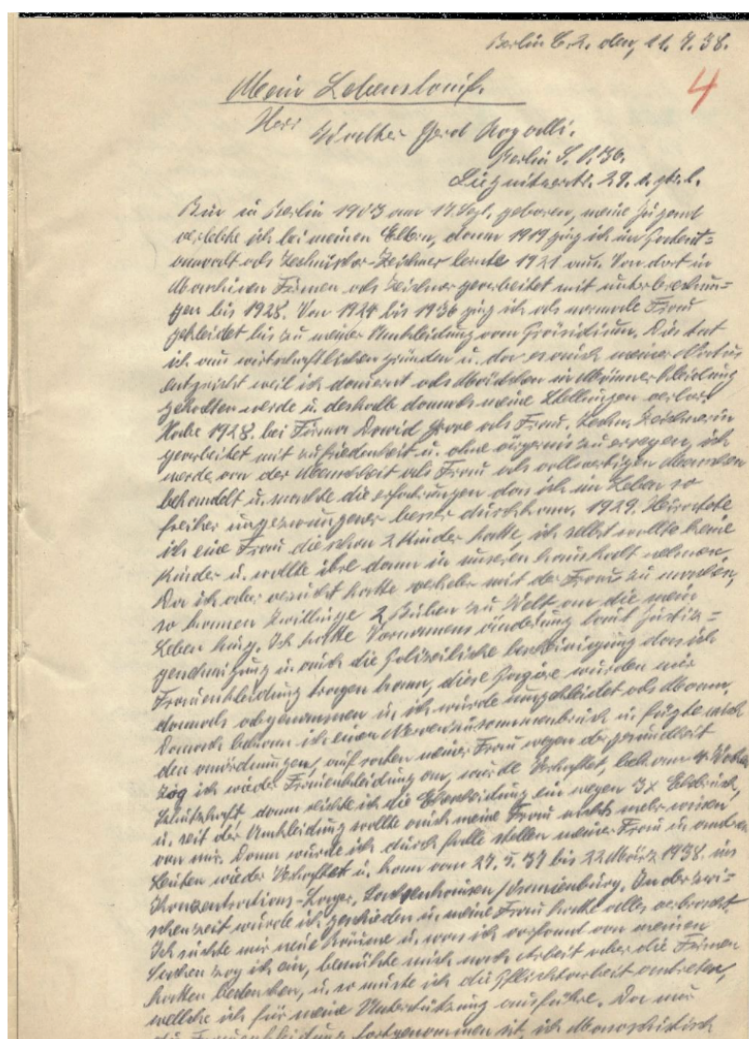 Berlin C.2. den, 11. 7. 38.
4
Mein Lebenslauf.
Herr Gerd
Berlin S.O.36.
Liegnitzerstr.
Bin in Berlin 1903 am 17. Sept. geboren, meine Jugend
verlebte ich bei meinen Eltern, dann 1919 ging ich im Patent=
anwalt als Technischer-Zeichner lernte 1921 aus. Von dort in
Firmen als Zeichner gearbeitet mit unterbrechun=
gen bis 1928. Von bis 1936 ging ich als normale Frau
gekleidet bis zu meiner Umkleidung vom Präsidium. Dies tat
ich aus wirtschaftlichen gründen u. da es auch meiner Natur
entspricht weil ich dauernt als Mädchen in Männerkleidung
gehalten werde u. deshalb damals meine Stellungen verlor.
Habe 1928. bei Firma David Grove als Frau. Techn. Zeichnerin
gearbeitet mit zufriedenheit u. ohne ärgernis zu erregen, ich
werde von der Menschheit als Frau als vollwertigen Menschen
behandelt u. machte die erfahrungen das ich im Leben so
freiher ungezwungener besser durchkam. 1929. Heiratete
ich eine Frau die schon 2 Kinder hatte, ich selbst wollte keine
Kinder u. wollte ihre dann in unseren haushalt nehmen.
Da ich aber versucht hatte verkehr mit der Frau zu machen,
so kamen Zwillinge 2 Buben zu Welt an die mein
Leben hing. Ich hatte Vornamens änderung laut Justiz=
genehmigung u. auch die Polizeiliche bescheinigung das ich
Frauenkleidung tragen kann, diese Papiere wurden mir
damals abgenommen u. ich wurde umgekleidet als Mann.
Danach bekam ich einen Nervenzusammenbruch u. fügte mich
den anordnungen, auf raten meiner Frau wegen der gesundheit
zog ich wieder Frauenkleidung an, wurde Verhaftet, bekam 4 Wochen
Schutzhaft dann reichte ich die Ehescheidung ein wegen 3x Ehebruch,
u. seit der Umkleidung wollte auch meine Frau nichts mehr wissen
von mir. Dann wurde ich durch falle stellen meiner Frau u. andren
Leuten wieder Verhaftet u. kam vom 27. 5. 37 bis 22 März 1938. ins
Konzentrations-Lager, Sachsenhausen/Oranienburg. In der zwi=
schenzeit wurde ich geschieden u. meine Frau hatte alles verbracht.
Ich suchte mir neue Räume u. was ich vorfand von meinen
Sachen zog ich ein, bemühte mich nach Arbeit aber die Firmen
hatten bedenken, u. so müste ich die Pflichtarbeit antreten,
wellche ich für meine Unterstützung ausführe. Da mir
die Frauenkleidung fortgenommen ist, ich